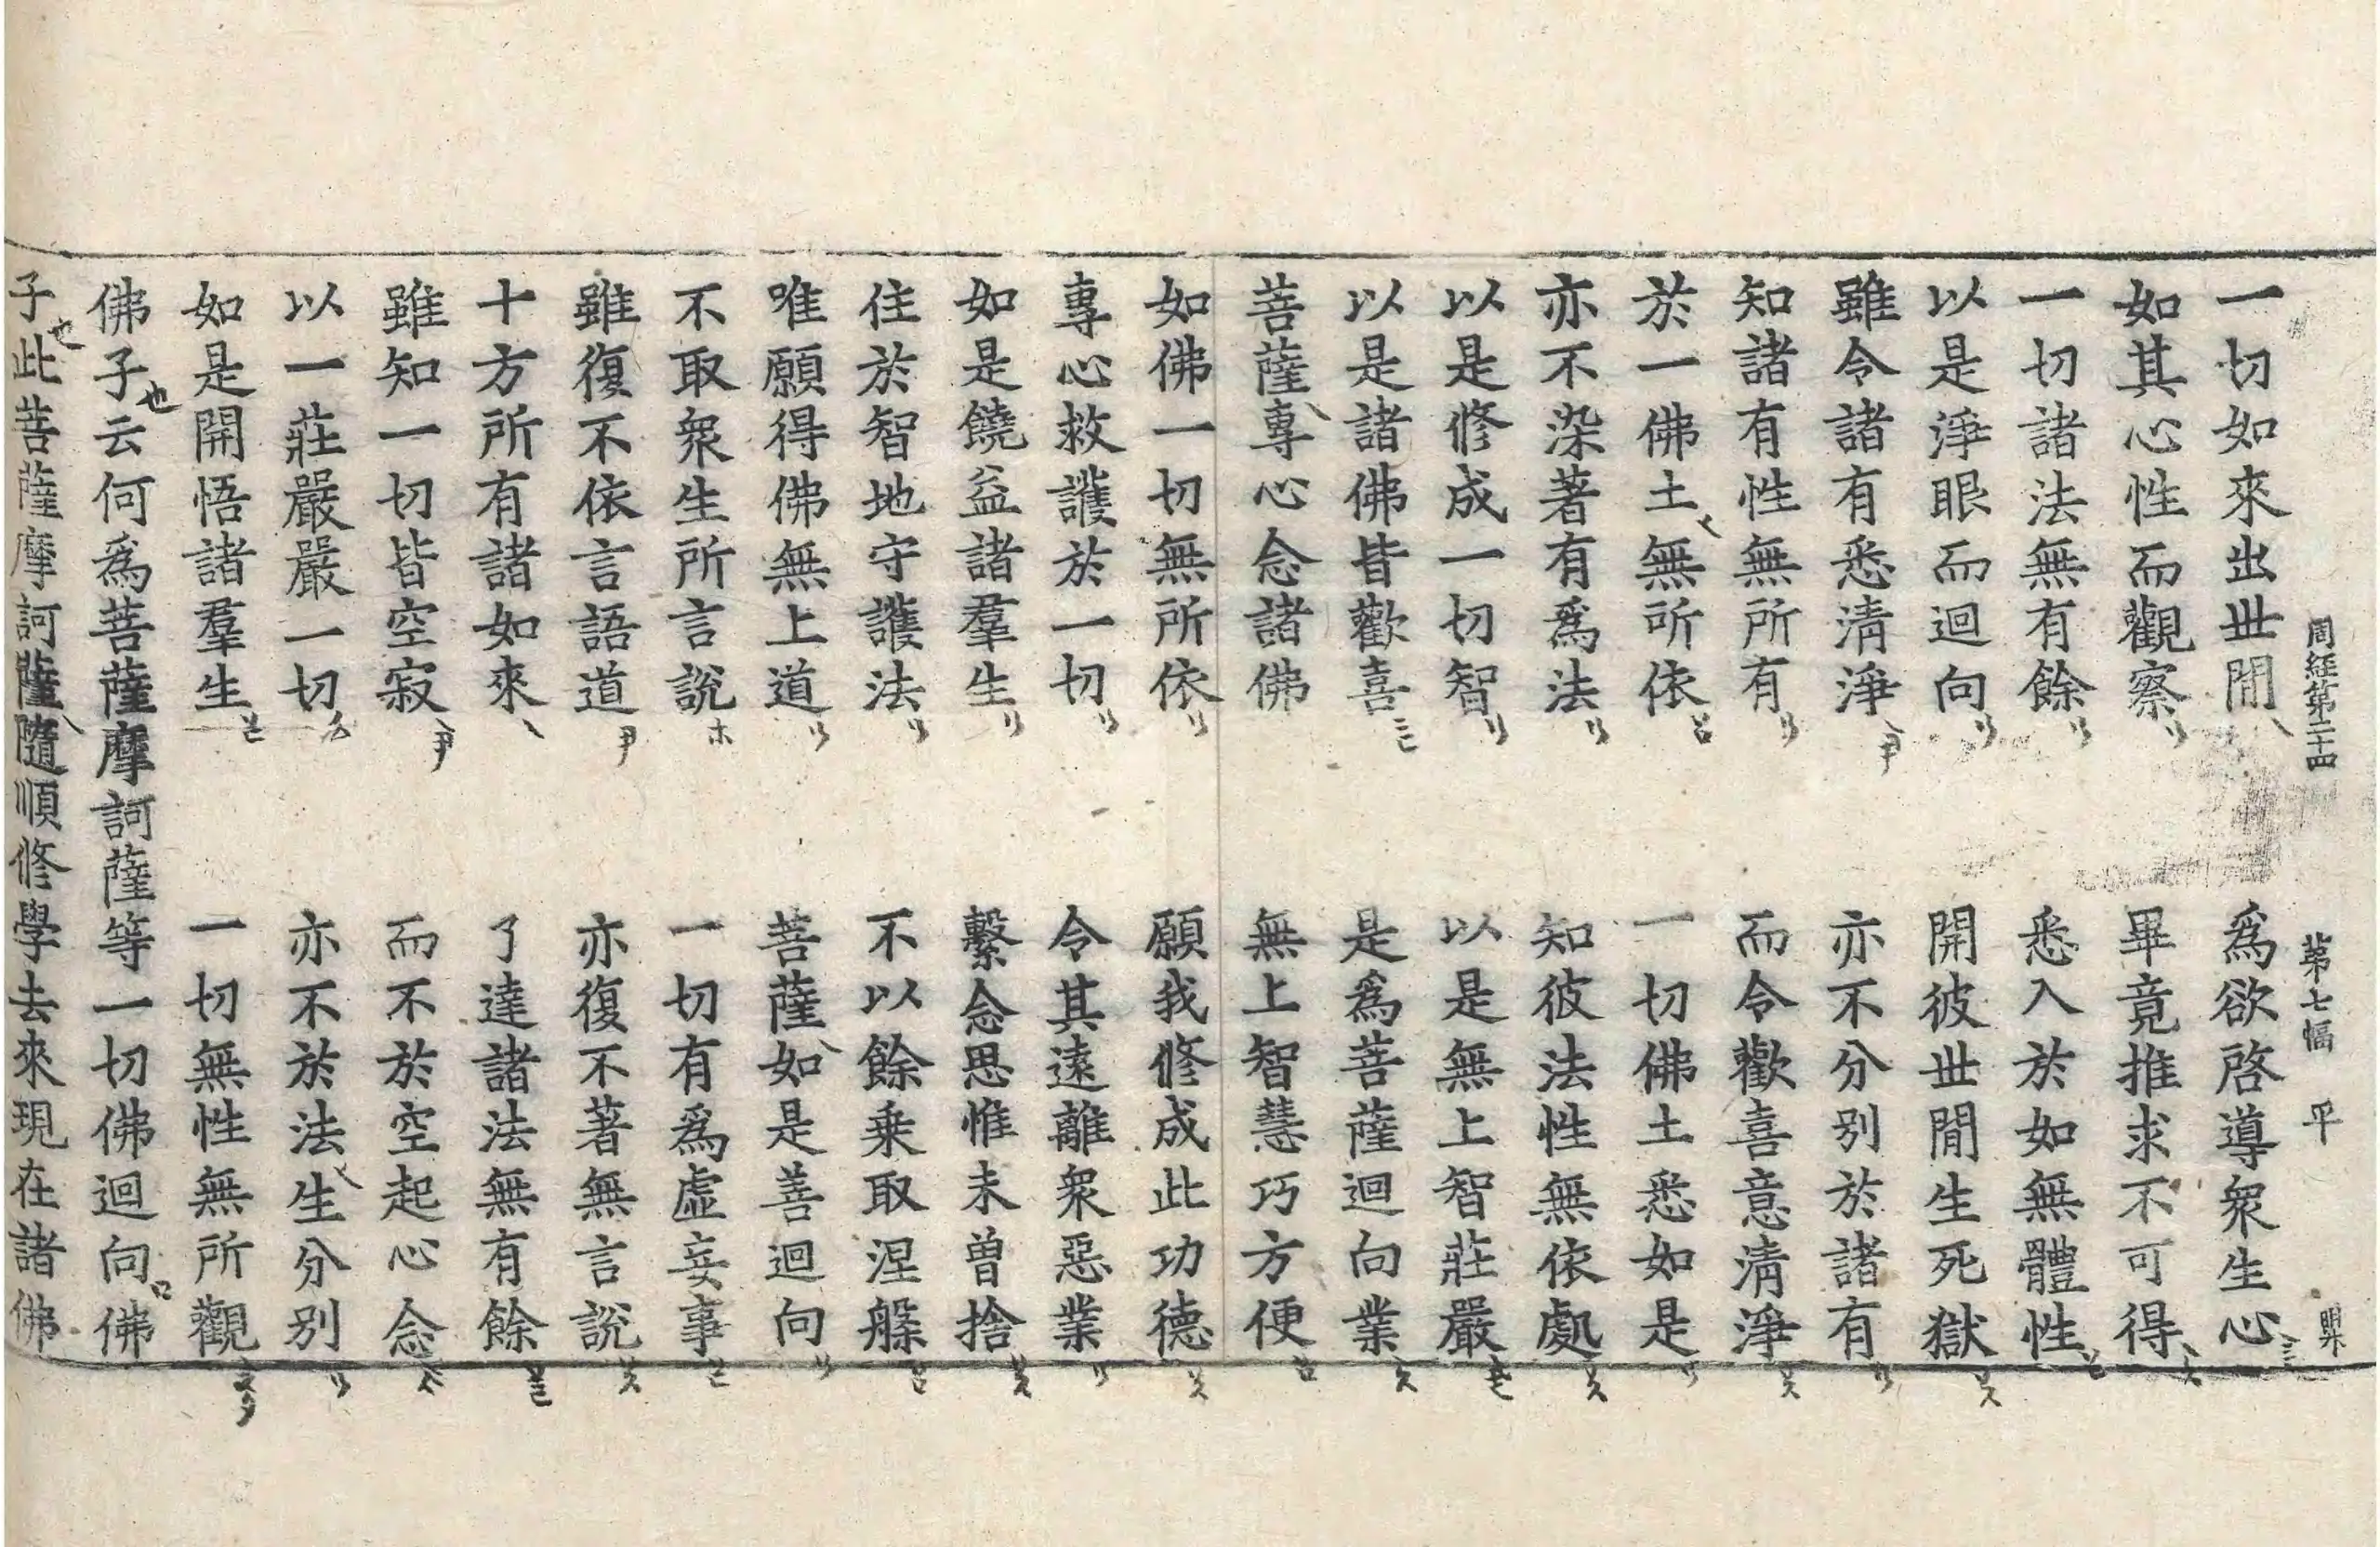 周經第二十四 第七幅 平
一切如來出世間 爲欲啓導衆生心
如其心性而觀察 畢竟推求不可得
一切諸法無有餘 悉入於如無體性
以是淨眼而迴向 開彼世間生死獄
雖令諸有悉清淨 亦不分别於諸有
知諸有性無所有 而令歡喜意清淨
於一佛土無所依 一切佛土悉如是
亦不染著有爲法 知彼法性無依處
以是修成一切智 以是無上智莊嚴
以是諸佛皆歡喜 是爲菩薩迴向業
菩薩專心念諸佛 無上智慧巧方便
如佛一切無所依 願我修成此功德
專心救護於一切 令其遠離衆惡業
如是饒益諸羣生 繫念思惟未曾捨
住於智地守護法 不以餘乗取涅槃
唯願得佛無上道 菩薩如是善迴向
不取衆生所言說 一切有爲虛妄事
雖復不依言語道 亦復不著無言說
十方所有諸如來 了達諸法無有餘
雖知一切皆空寂 而不於空起心念
以一莊嚴嚴一切 亦不於法生分别
如是開悟諸羣生 一切無性無所觀
佛子云何爲菩薩摩訶薩等一切佛迴向佛
子此菩薩摩訶薩隨順修學去來現在諸佛